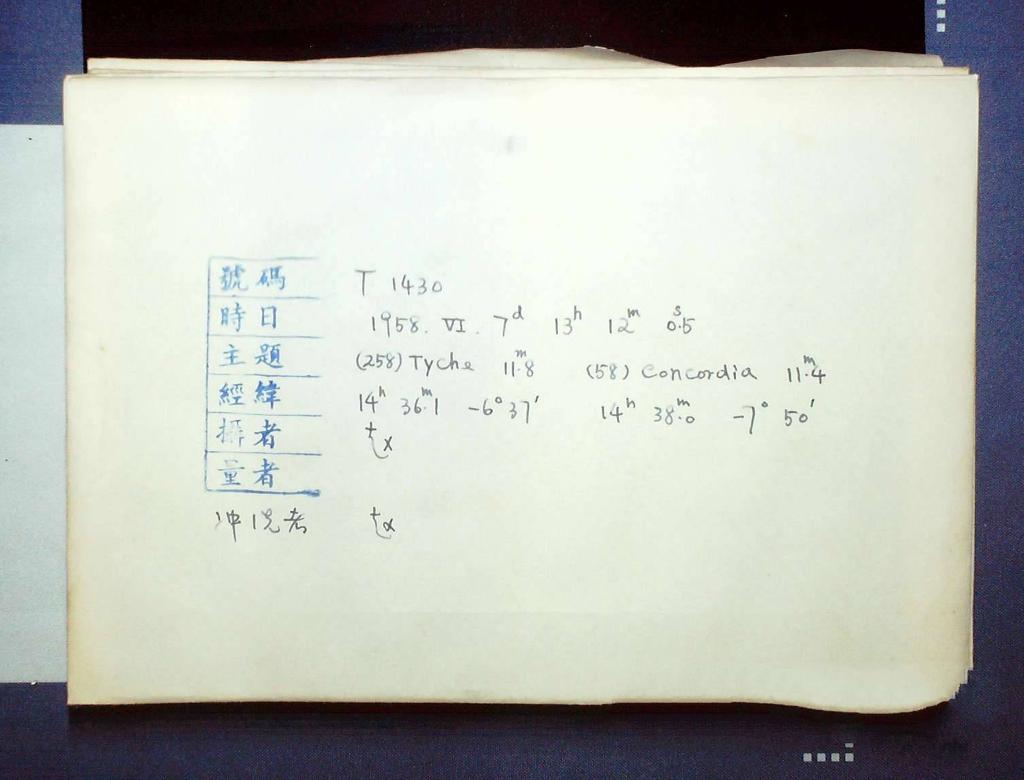 號碼 T 1430
時日 1958. VI. 7ᵈ 13ʰ 12ᵐ 0ˢ.5
主題 (258) Tyche 11ᵐ.8 (58) Concordia 11ᵐ.4
經緯 14ʰ 36ᵐ.1 -6°37′ 14ʰ 38ᵐ.0 -7° 50′
攝者
量者
冲洗者